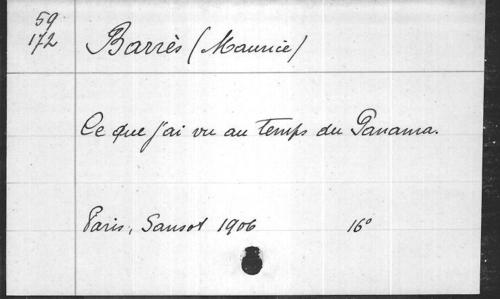 59
172
Barrès (Maurice)
Ce que j'ai vu au temps du Panama.
Paris, Sansot 1906 16°